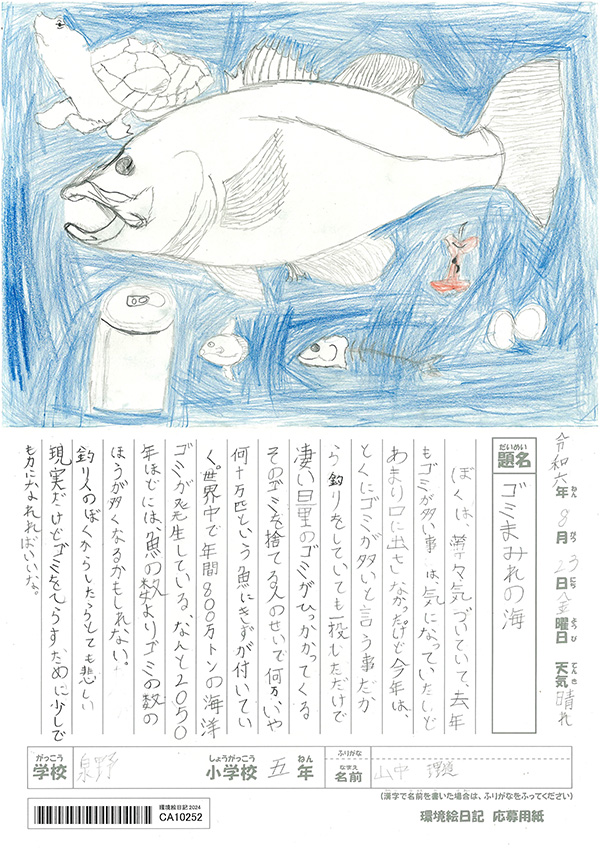 令和六年 8月23日 金曜日 天気 晴れ
ねん がつ にち ようび てんき
だいめい
題名 ゴミまみれの海
ぼくは、薄々気づいていて、去年
もゴミが多い事は、気になっていたけど
あまり口に出さなかったけど今年は、
とくにゴミが多いと言う事だか
ら釣りをしていても一投しただけで
凄い量のゴミがひっかかってくる
そのゴミを捨てる人のせいで何万、いや
何十万匹という魚にきずが付いてい
く。世界中で年間800万トンの海洋
ゴミが発生している、なんと2050
年ほどには、魚の数よりゴミの数の
ほうが多くなるかもしれない。
釣り人のぼくからしたらとても悲しい
現実だけどゴミをへらすために少しで
も力になれればいいな。
がっこう しょうがっこう ねん ふりがな
学校 泉野 小学校 五年 なまえ 名前 山中
(漢字で名前を書いた場合は、ふりがなをふってください)
環境絵日記 2024
CA10252
環境絵日記 応募用紙